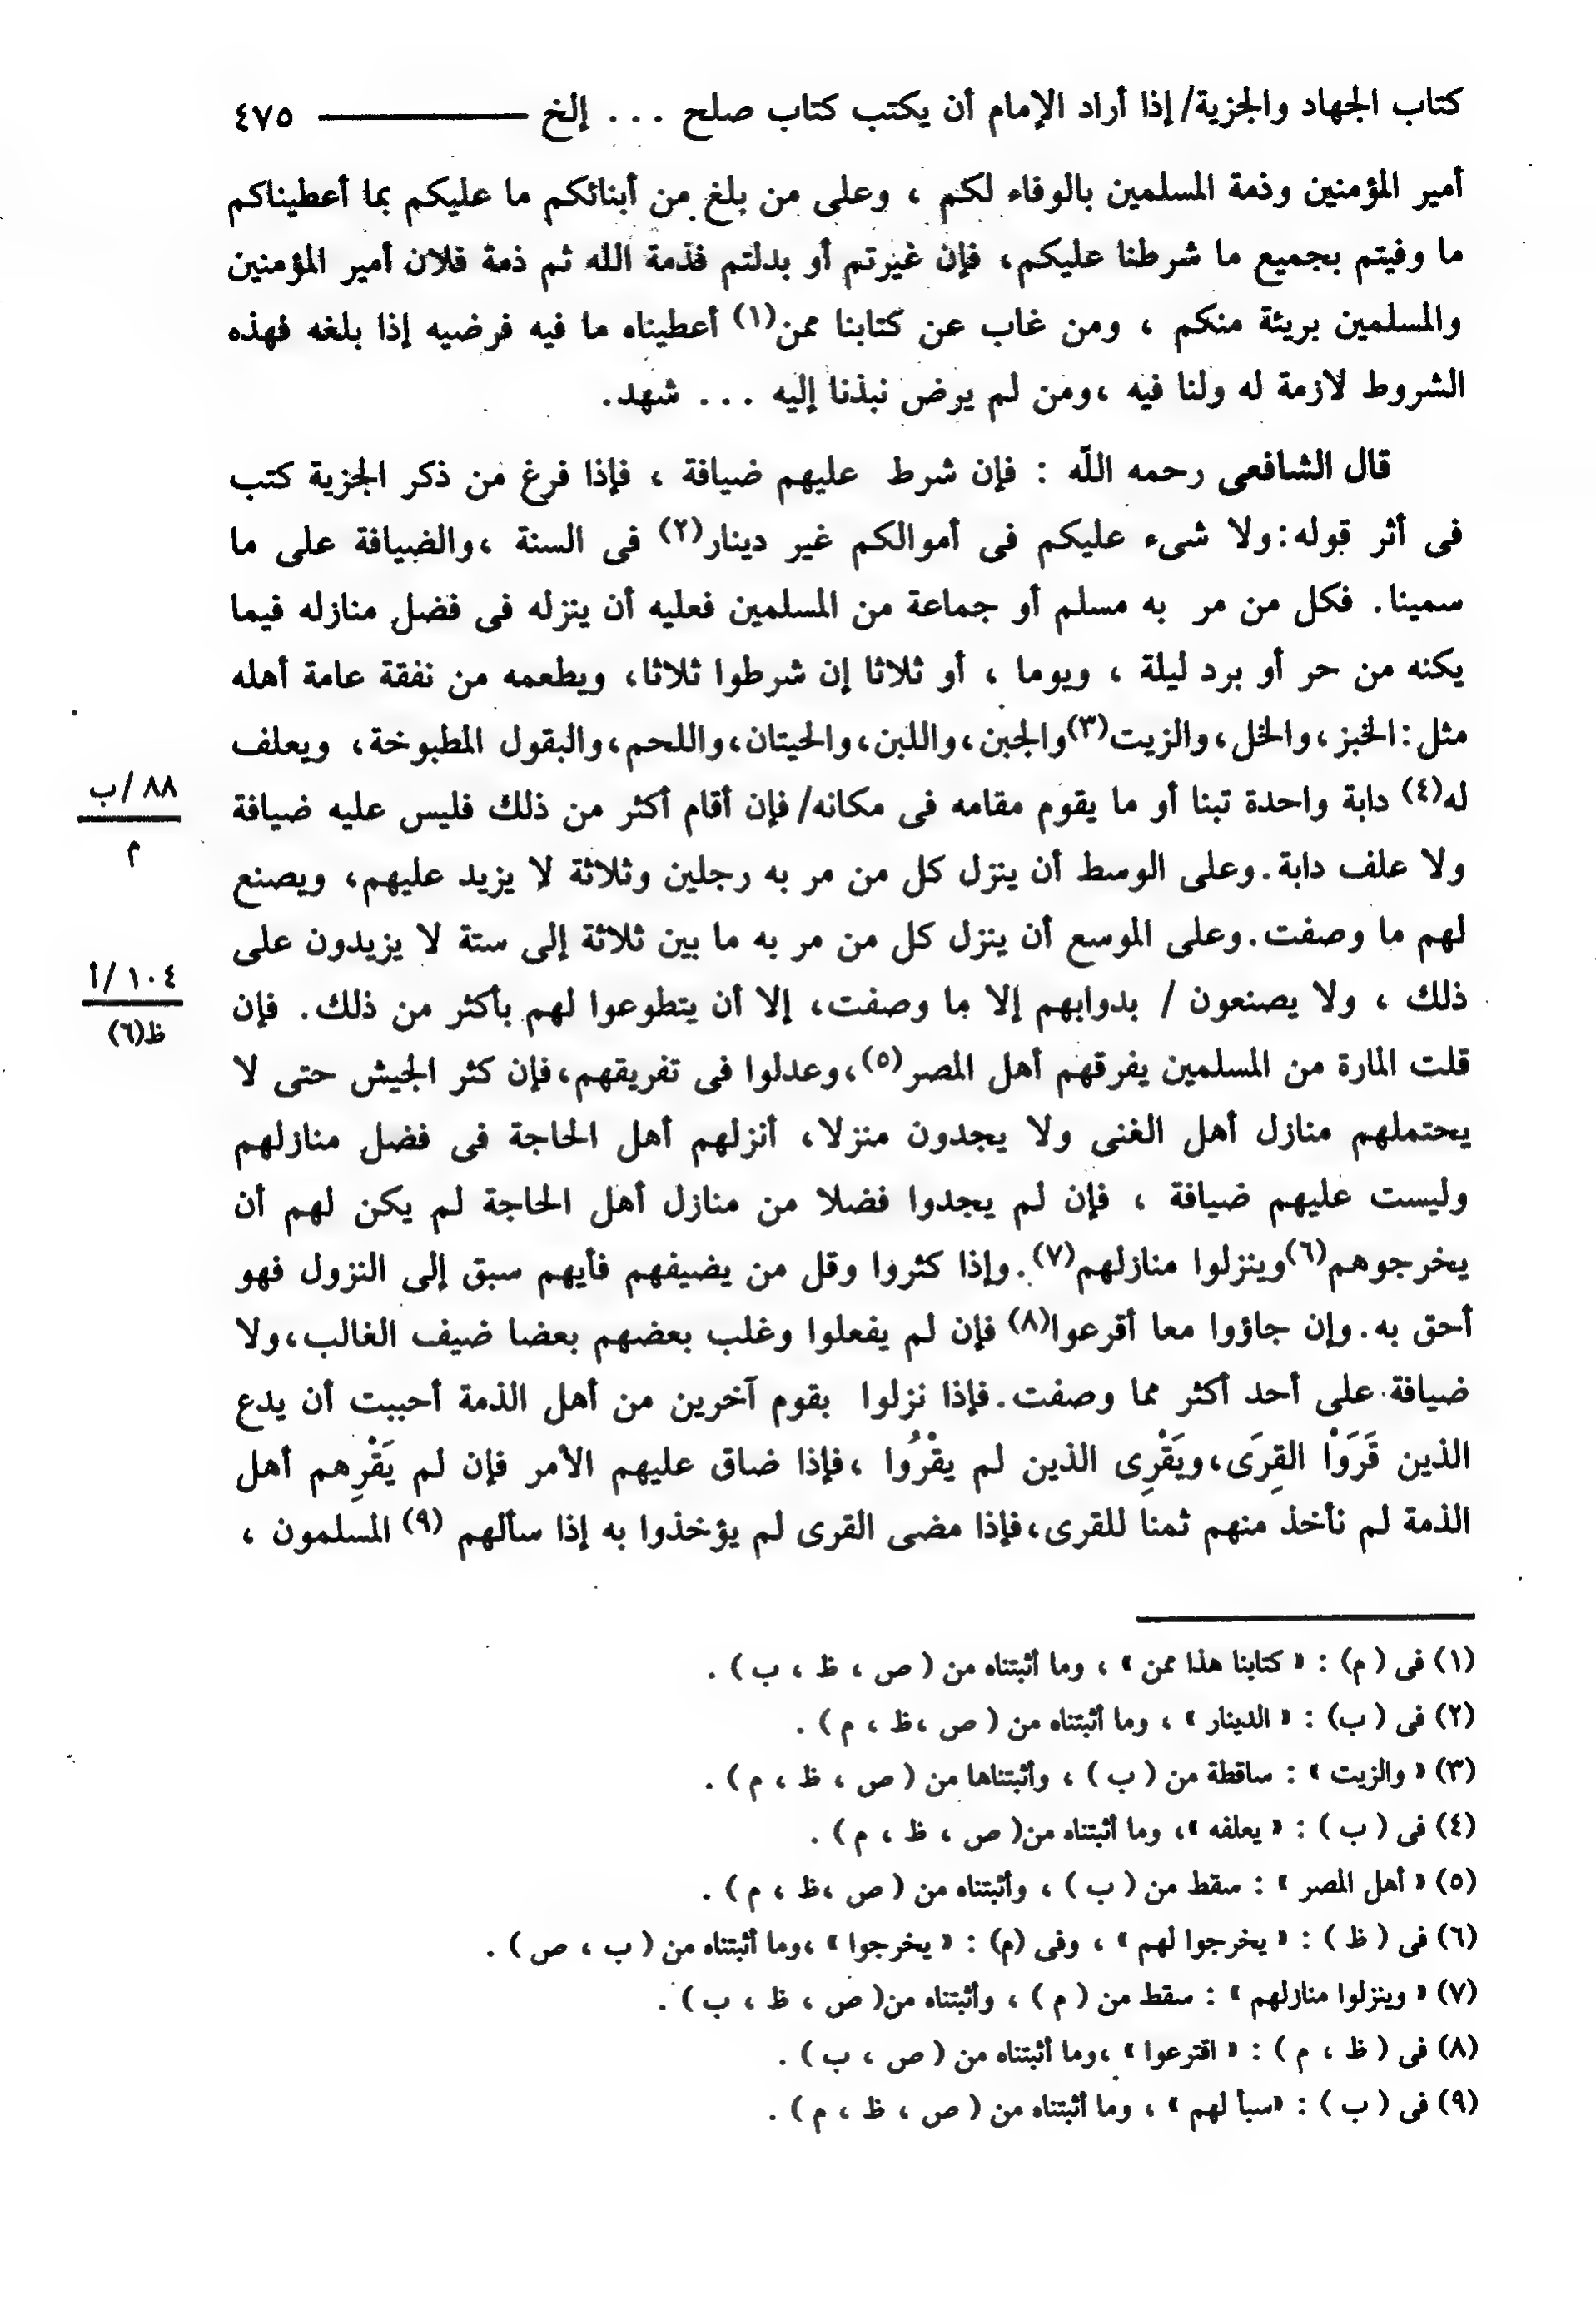 كتاب الجهاد والجزية/ إذا أراد الإمام أن يكتب كتاب صلح ... إلخ ـــــــــــــ ٤٧٥
أمير المؤمنين وذمة المسلمين بالوفاء لكم ، وعلى من بلغ من أبنائكم ما عليكم بما أعطيناكم
ما وفيتم بجميع ما شرطنا عليكم، فإن غيرتم أو بدلتم فذمة الله ثم ذمة فلان أمير المؤمنين
والمسلمين بريئة منكم ، ومن غاب عن كتابنا ممن(١) أعطيناه ما فيه فرضيه إذا بلغه فهذه
الشروط لازمة له ولنا فيه ،ومن لم يرض نبذنا إليه ... شهد.
قال الشافعى رحمه اللّه : فإن شرط عليهم ضيافة ، فإذا فرغ من ذكر الجزية كتب
فى أثر قوله:ولا شىء عليكم فى أموالكم غير دينار(٢) فى السنة ،والضيافة على ما
سمينا. فكل من مر به مسلم أو جماعة من المسلمين فعليه أن ينزله فى فضل منازله فيما
يكنه من حر أو برد ليلة ، ويوما ، أو ثلاثا إن شرطوا ثلاثا، ويطعمه من نفقة عامة أهله
مثل:الخبز،والخل،والزيت(٣)والجبن،واللبن،والحيتان،واللحم،والبقول المطبوخة، ويعلف
له(٤) دابة واحدة تبنا أو ما يقوم مقامه فى مكانه/ فإن أقام أكثر من ذلك فليس عليه ضيافة
٨٨ /ب
م
ولا علف دابة.وعلى الوسط أن ينزل كل من مر به رجلين وثلاثة لا يزيد عليهم، ويصنع
لهم ما وصفت.وعلى الموسع أن ينزل كل من مر به ما بين ثلاثة إلى ستة لا يزيدون على
ذلك ، ولا يصنعون / بدوابهم إلا ما وصفت، إلا أن يتطوعوا لهم بأكثر من ذلك. فإن
١٠٤ /أ
ظ(٦)
قلت المارة من المسلمين يفرقهم أهل المصر(٥)،وعدلوا فى تفريقهم،فإن كثر الجيش حتى لا
يحتملهم منازل أهل الغنى ولا يجدون منزلا، أنزلهم أهل الحاجة فى فضل منازلهم
وليست عليهم ضيافة ، فإن لم يجدوا فضلا من منازل أهل الحاجة لم يكن لهم أن
يخرجوهم(٦)وينزلوا منازلهم(٧).وإذا كثروا وقل من يضيفهم فأيهم سبق إلى النزول فهو
أحق به.وإن جاؤوا معا أقرعوا(٨) فإن لم يفعلوا وغلب بعضهم بعضا ضيف الغالب،ولا
ضيافة على أحد أكثر مما وصفت.فإذا نزلوا بقوم آخرين من أهل الذمة أحببت أن يدع
الذين قَرَوْا القِرَى،ويَقْرِى الذين لم يقْرُوا ،فإذا ضاق عليهم الأمر فإن لم يَقْرِهم أهل
الذمة لم نأخذ منهم ثمنا للقرى،فإذا مضى القرى لم يؤخذوا به إذا سألهم (٩) المسلمون ،
(١) فى ( م) : « كتابنا هذا ممن » ، وما أثبتناه من ( ص ، ظ ، ب ) .
(٢) فى ( ب) : « الدينار » ، وما أثبتناه من ( ص ،ظ ، م ) .
(٣) « والزيت » : ساقطة من ( ب ) ، وأثبتناها من ( ص ، ظ ، م ) .
(٤) فى ( ب ) : « يعلفه »، وما أثبتناه من( ص ، ظ ، م ) .
(٥) « أهل المصر » : سقط من ( ب ) ، وأثبتناه من ( ص ،ظ ، م ) .
(٦) فى ( ظ ) : « يخرجوا لهم » ، وفى (م) : « يخرجوا » ،وما أثبتناه من ( ب ، ص ) .
(٧) « وينزلوا منازلهم » : سقط من ( م ) ، وأثبتناه من( ص ، ظ ، ب ) .
(٨) فى ( ظ ، م ) : « اقترعوا » ،وما أثبتناه من ( ص ، ب ) .
(٩) فى ( ب ) : «سبأ لهم » ، وما أثبتناه من ( ص ، ظ ، م ) .